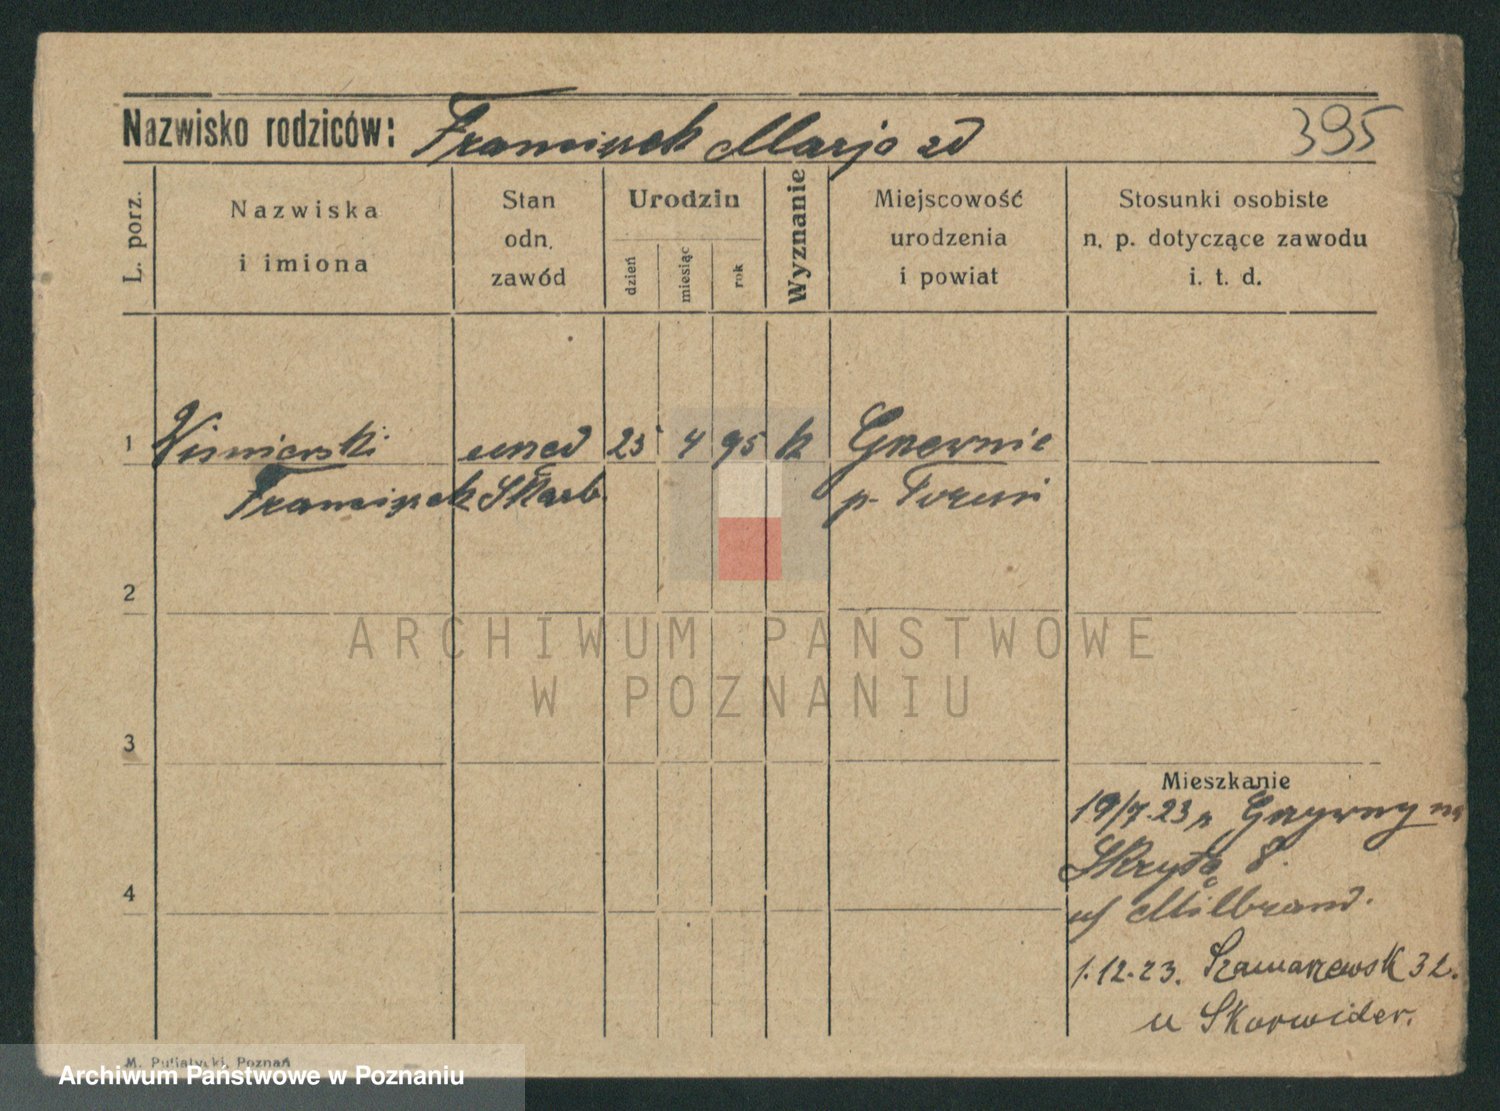 Nazwisko rodziców: Franciszek Marja zd
395
L. porz.
Nazwiska
i imiona
Stan
odn.
zawód
Urodzin
dzień
miesiąc
rok
Wyznanie
Miejscowość
urodzenia
i powiat
Stosunki osobiste
n. p. dotyczące zawodu
i. t. d.
1 Wisniewski urzed 25 4 95 k
Franciszek Skarb. p. Toruń
2
ARCHIWUM PAŃSTWOWE
W POZNANIU
3
Mieszkanie
19/7.23 z na
Skryta 8.
4
Milbrand.
1.12.23. Szamarzewsk 32.
u Skorwider.
M. Putiatycki, Poznań
Archiwum Państwowe w Poznaniu